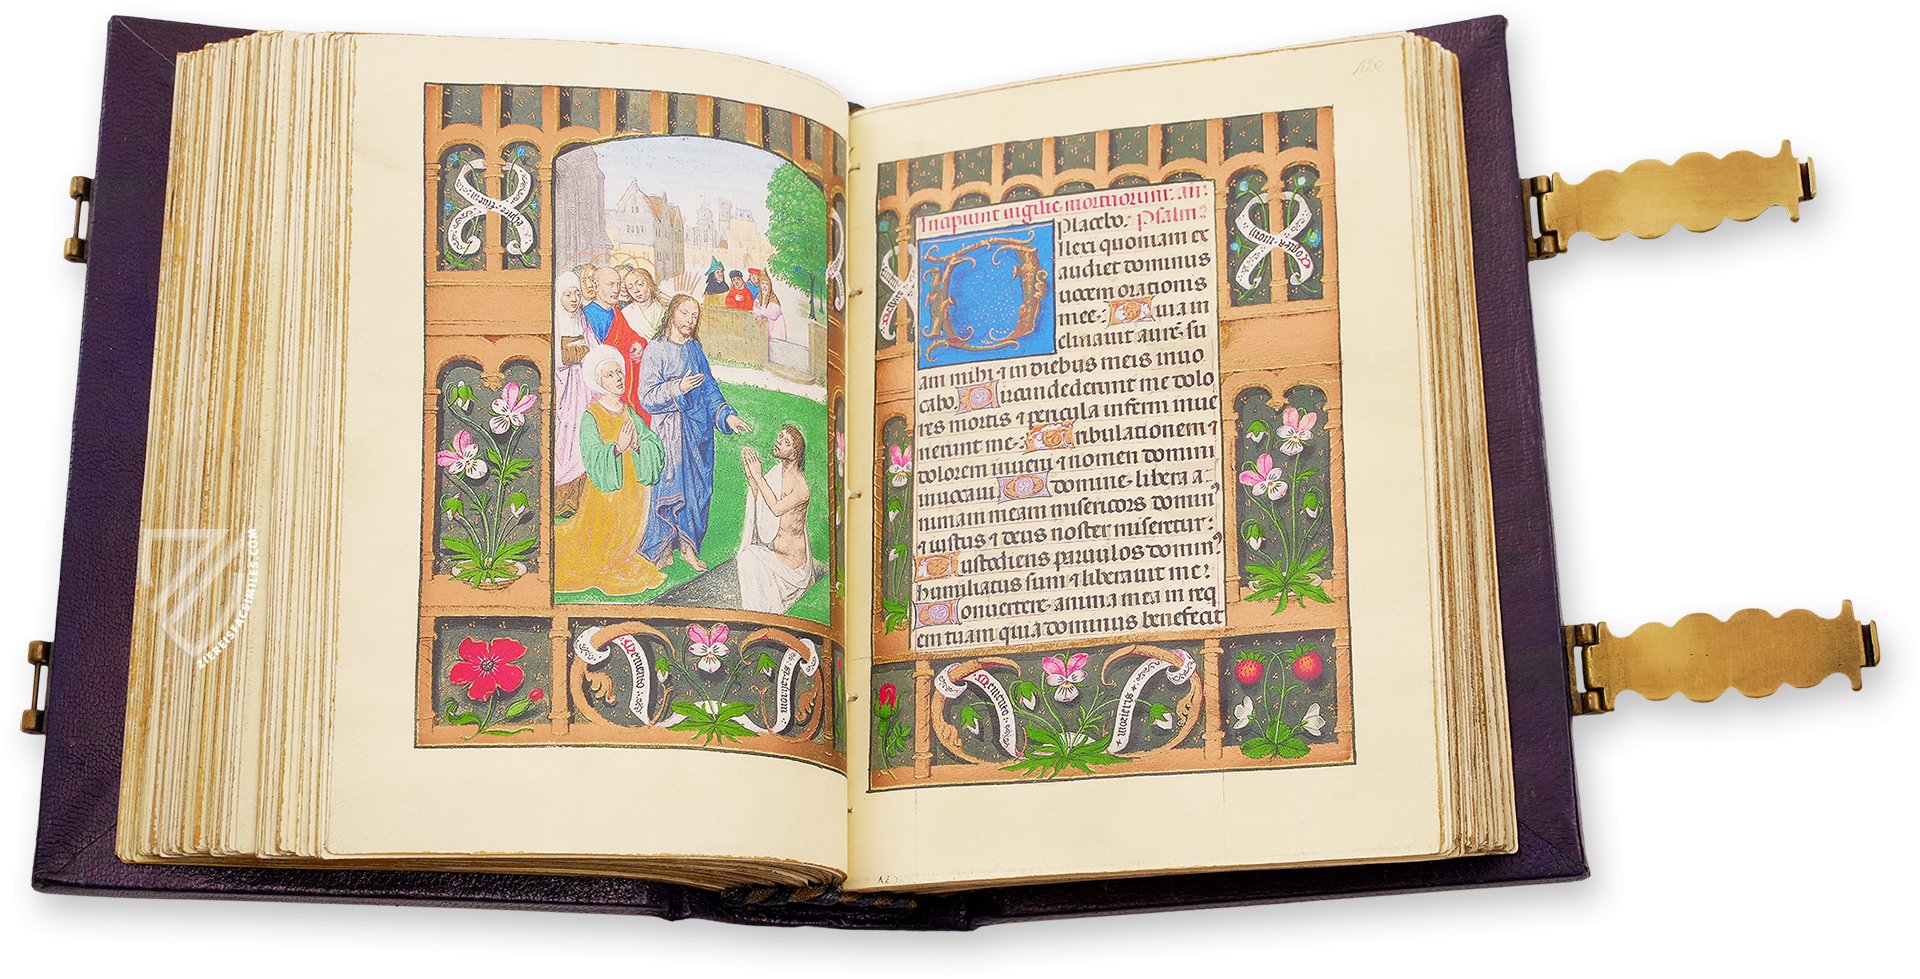 Memento
morieris
ZIEREISFACSIMILES.COM
120
Incipiunt vigilie mortuorum. an:
Placebo. Psalm9
Ilexi quoniam ex
audiet dominus
vocem orationis
mee: Quia in
clinavit aurē su
am mihi ⁊ in diebus meis invo
cabo. Circundederunt me dolo
res mortis ⁊ pericula inferni inve
nerunt me: Tribulationem ⁊
dolorem inveni ⁊ nomen domini
invocavi. O domine libera a-
nimam meam misericors domin9
⁊ iustus ⁊ deus noster miseretur:
Custodiens parvulos domin9
humiliatus sum ⁊ liberavit me:
Convertere anima mea in req
em tuam quia dominus benefecit
Memento
morierys